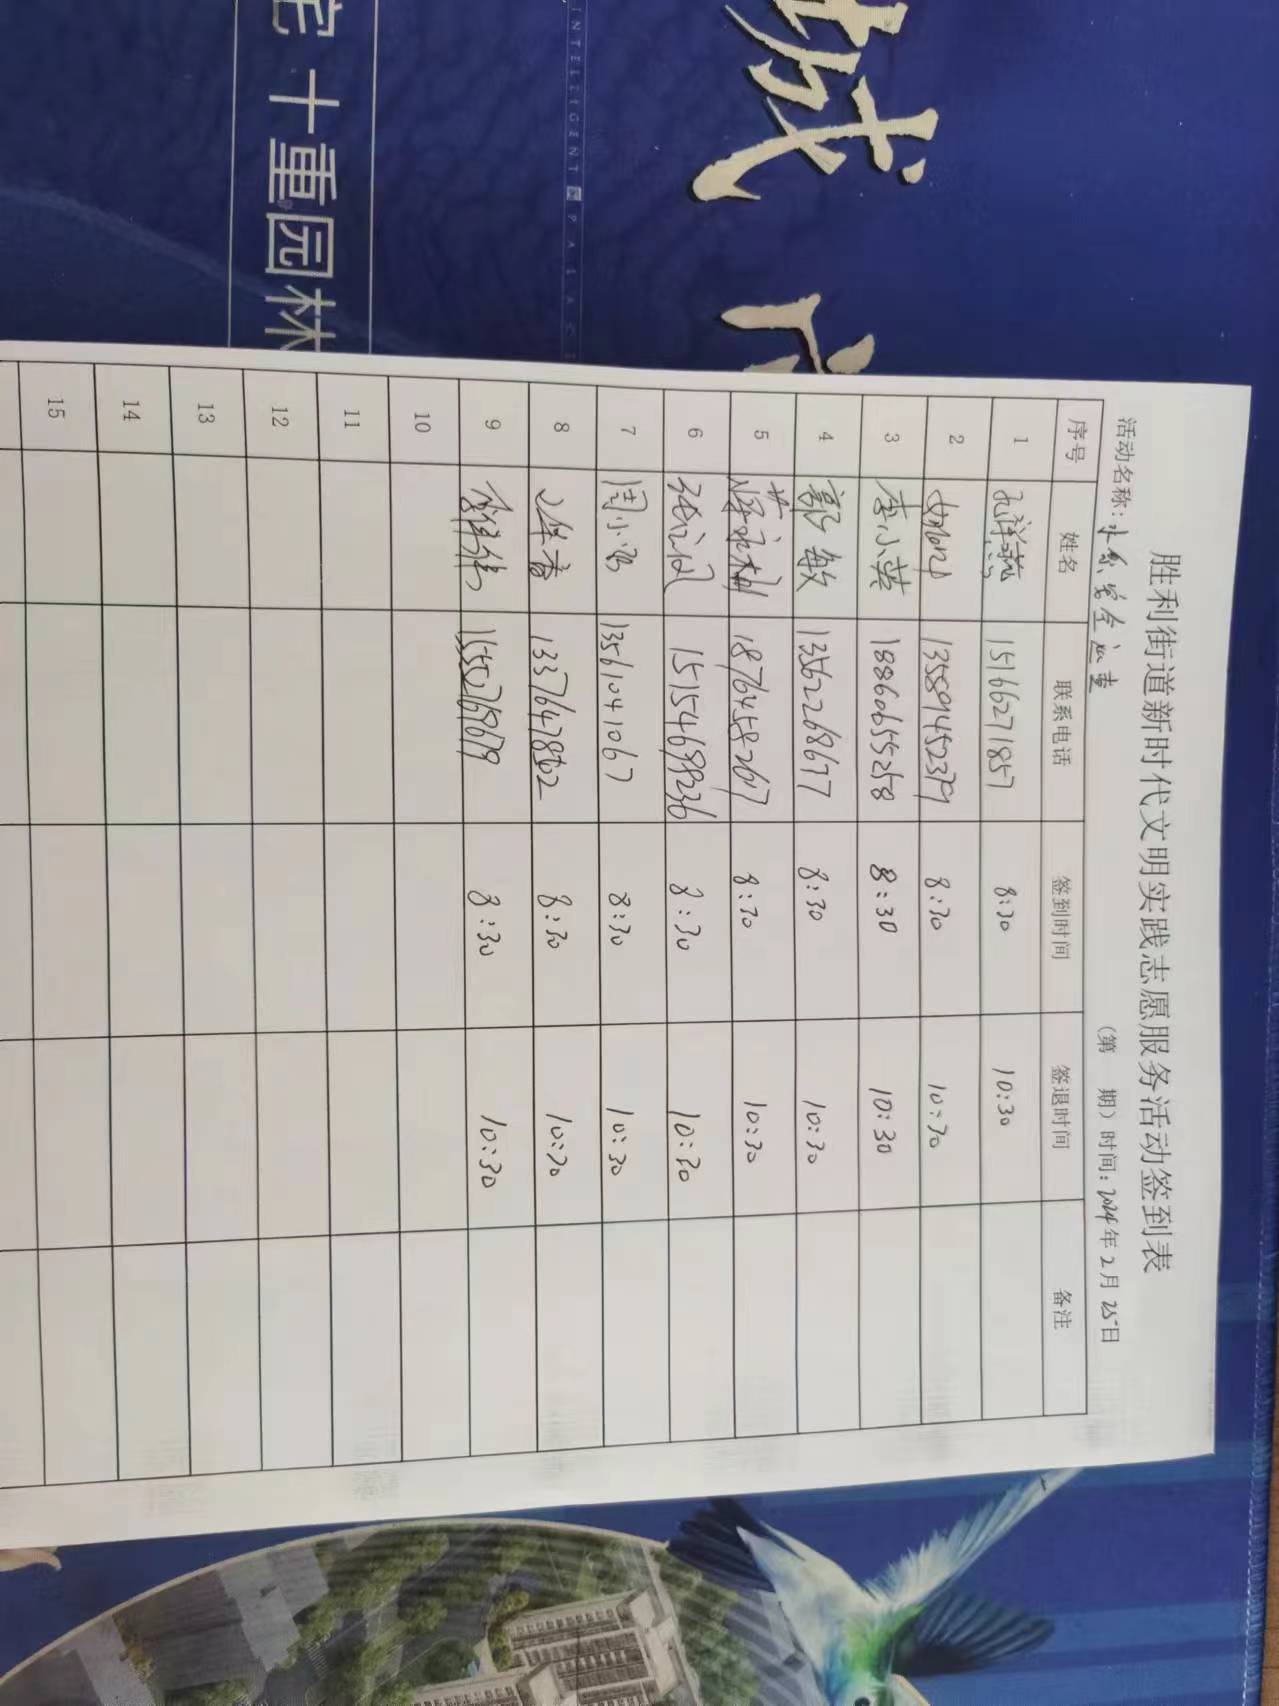 宅 十重园林
INTELLIGENT PALACE
城
胜利街道新时代文明实践志愿服务活动签到表
活动名称：水系安全巡查 （第 期）时间：2024年2月25日
序号 姓名 联系电话 签到时间 签退时间 备注
1 孔祥燕 15166271857 8:30 10:30
2 13589452379 8:30 10:30
3 李小英 18860655258 8:30 10:30
4 郭敏 13562268677 8:30 10:30
5 18764582617 8:30 10:30
6 15154688236 8:30 10:30
7 周小 13561041067 8:30 10:30
8 8:30 10:30
9 8:30 10:30
10
11
12
13
14
15